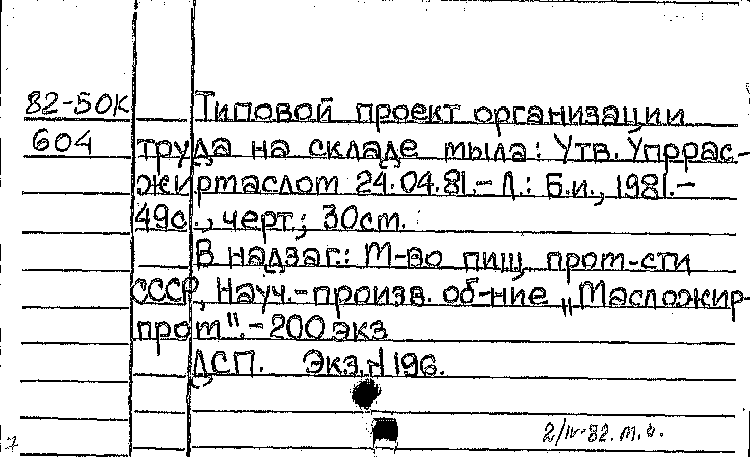 82-50К Типовой проект организации
604 труда на складе мыла: Утв. Упррас-
жирмаслом 24.04.81.- Л.: Б.и., 1981.-
49с., черт.; 30см.
В надзаг.: М-во пищ. пром-сти
СССР, Науч.-произв. об-ние „Масложир-
пром".- 200 экз
ДСП. Экз. N 196.
2/IV-82. т.